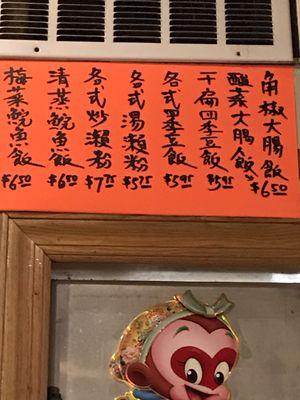 角椒大腸飯 $6.50
酸菜大腸飯
干扁四季豆飯 $5.95
各式四季豆飯 $5.95
各式湯瀨粉 $5.75
各式炒瀨粉 $7.25
清蒸鯇魚飯 $6.50
梅菜鯇魚飯 $6.50